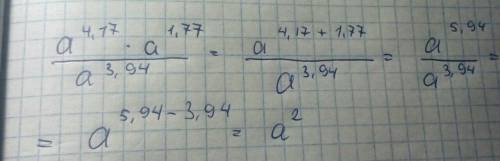 a^4,17 · a^1,77 / a^3,94 = a^4,17 + 1,77 / a^3,94 = a^5,94 / a^3,94 =
= a^5,94 - 3,94 = a^2